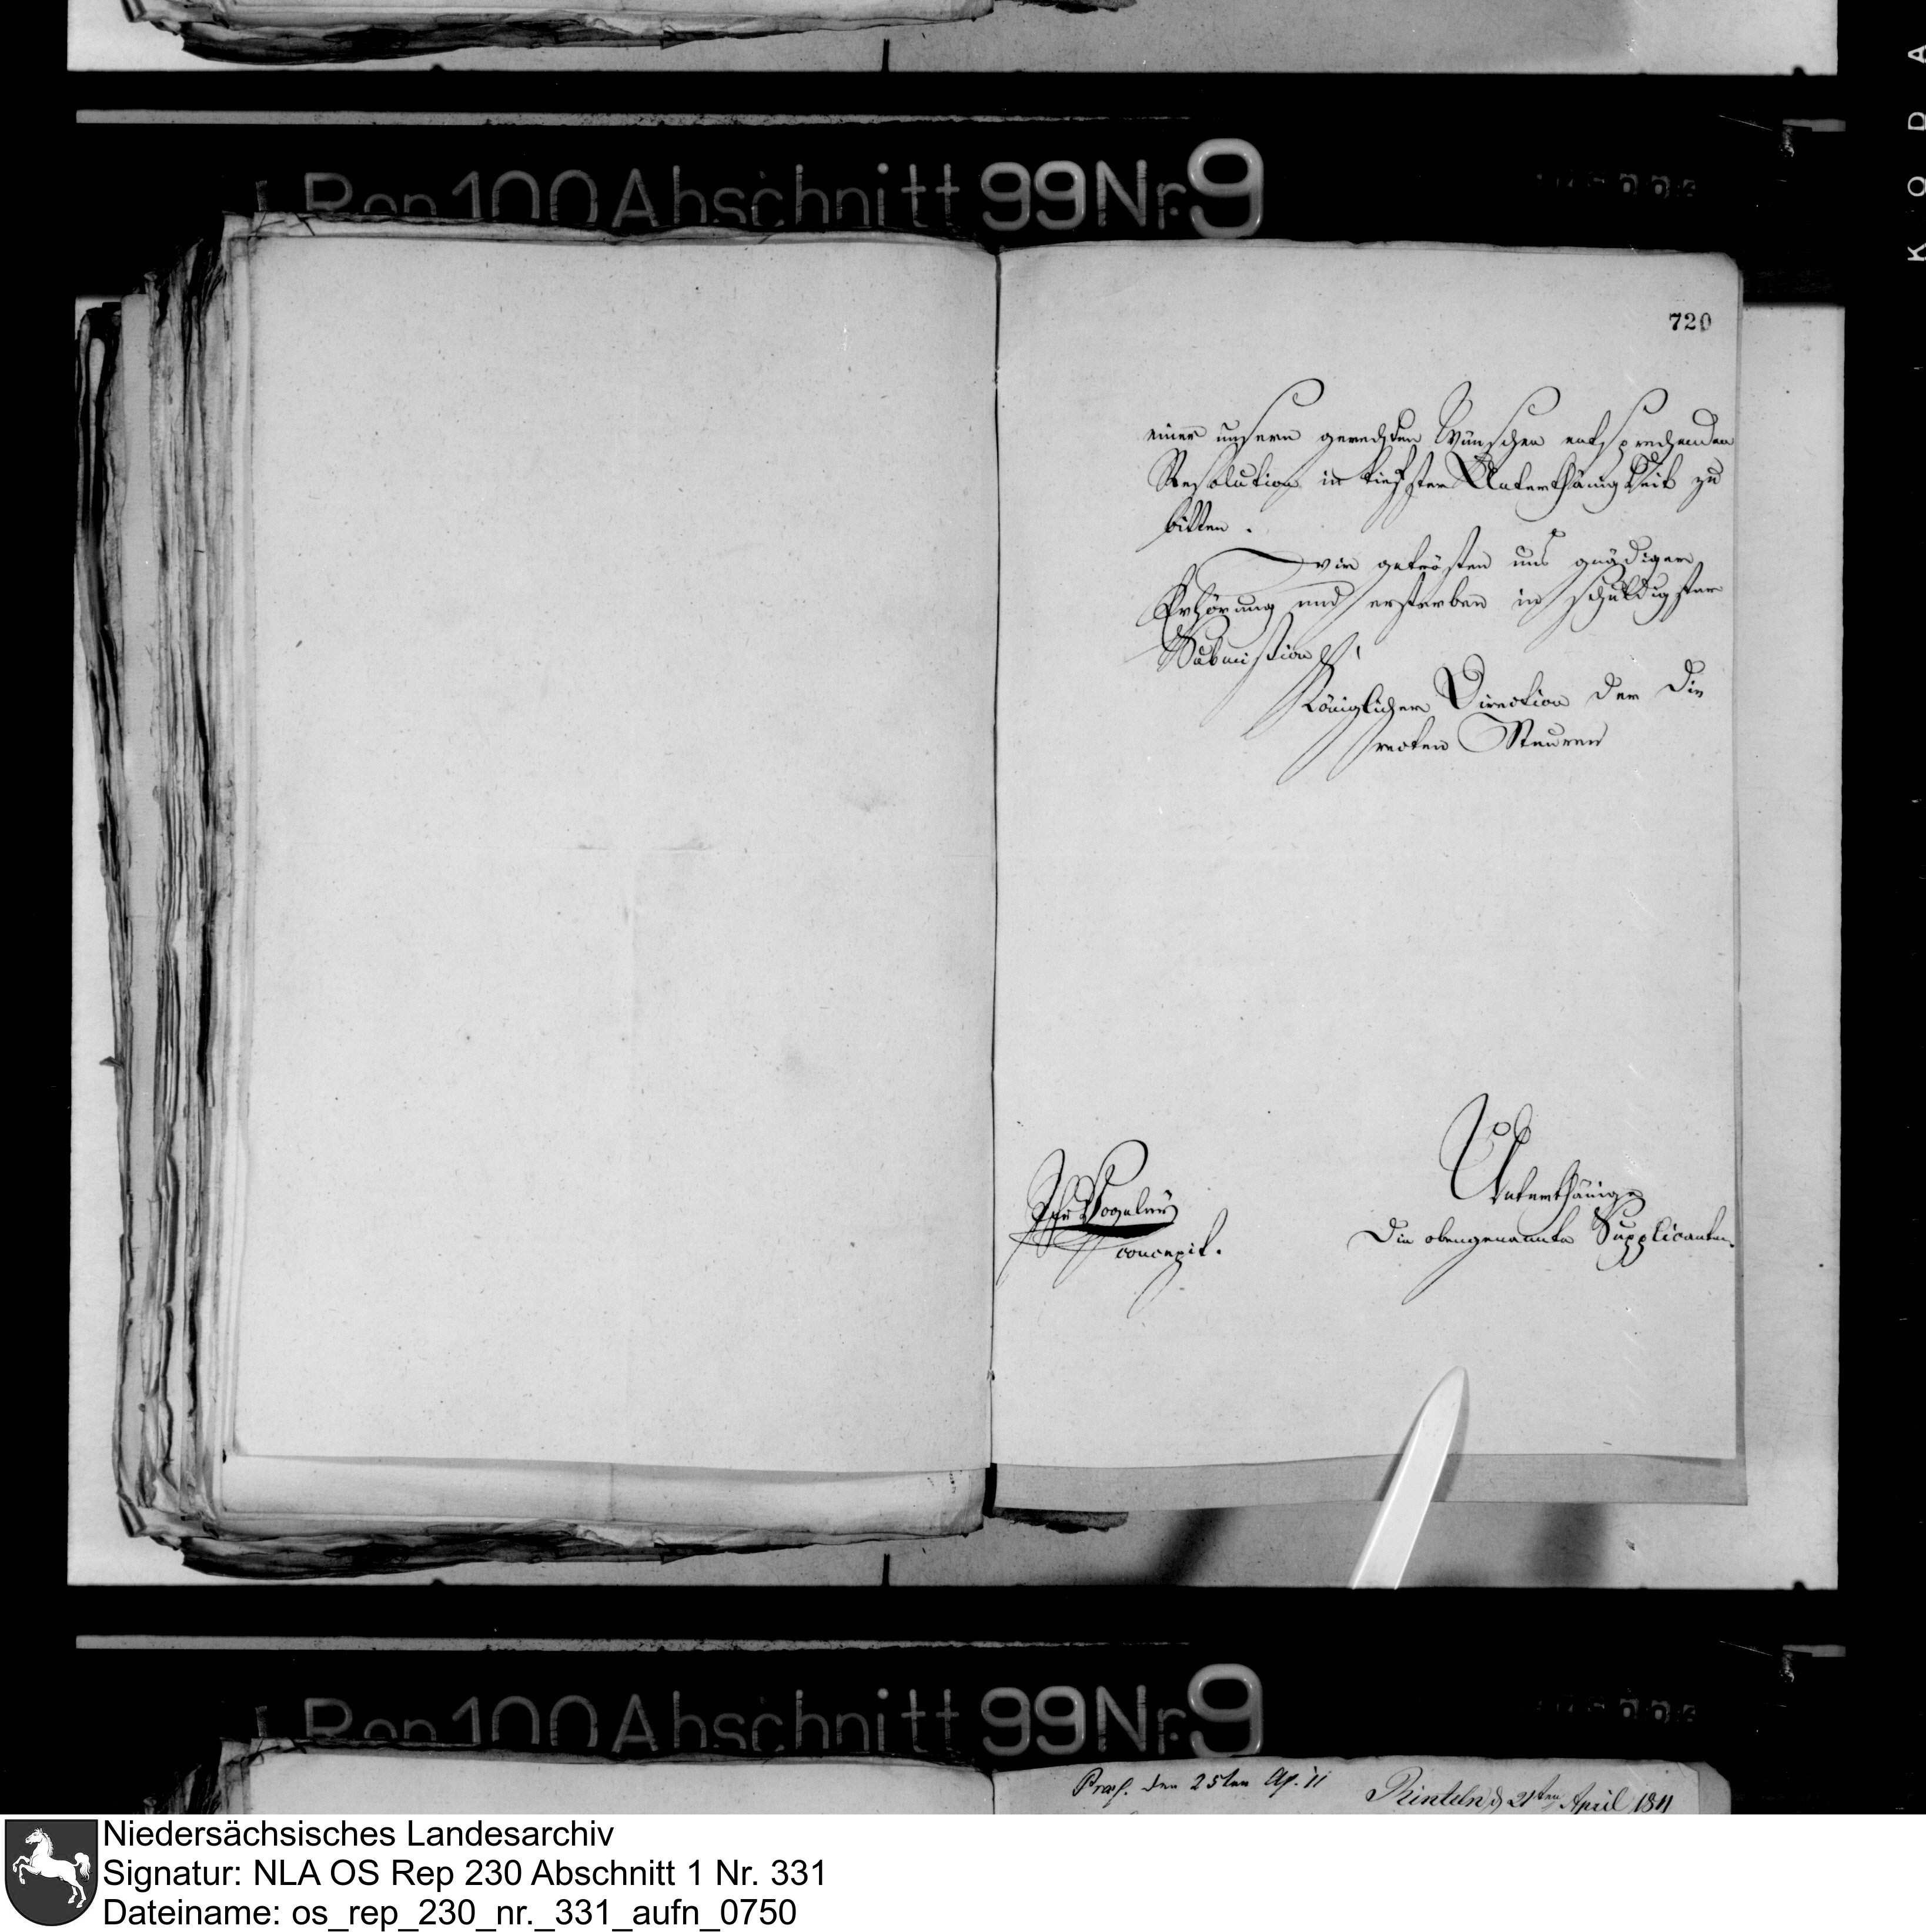 KODA
Rep 100 Abschnitt 99 Nr 9
720
einer unsern gerechten Wünschen entsprechenden
Resolution in tiefster Unterthänigkeit zu
bitten.
Wir getrösten uns gnädiger
Erhörung und ersterben in schuldigster
Submission
Königlicher Direction der Di
recten Steuren
Unterthänige
Die obengenannte Supplicanten
concepit.
Rep 100 Abschnitt 99 Nr 9
Praes. den 25ten Ap. 11
Rinteln d 21ten April 1811
Niedersächsisches Landesarchiv
Signatur: NLA OS Rep 230 Abschnitt 1 Nr. 331
Dateiname: os_rep_230_nr._331_aufn_0750